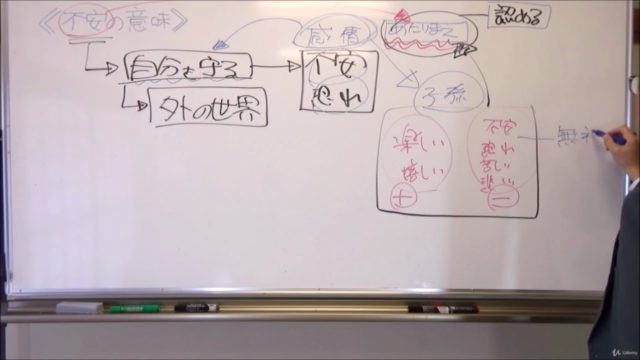 《不安の意味》
感情
あたりまえ
認める
自分を守る
不安
恐れ
外の世界
子孫
楽しい
嬉しい
+
不安
恐れ
苦しい
悲しい
−
無
Udemy